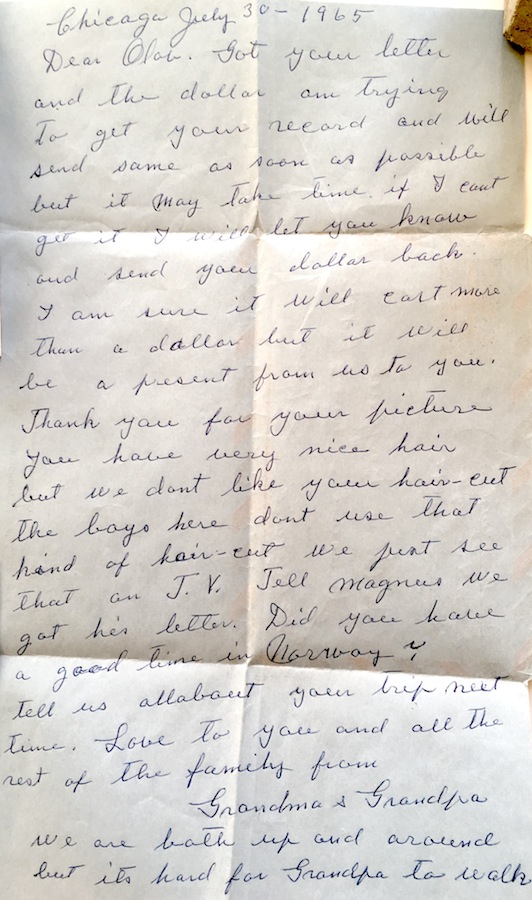 Chicago July 30 - 1965
Dear Olov. Got your letter
and the dollar am trying
to get your record and will
send same as soon as possible
but it may take time. if I cant
get it I will let you know
and send your dollar back.
I am sure it will cost more
than a dollar but it will
be a present from us to you.
Thank you for your picture
you have very nice hair
but we dont like your hair-cut
the boys here dont use that
kind of hair-cut we just see
that on T.V. Tell Magnus we
got his letter. Did you have
a good time in Norway?
tell us allabout your trip next
time. Love to you and all the
rest of the family from
Grandma & Grandpa
we are both up and around
but its hard for Grandpa to walk